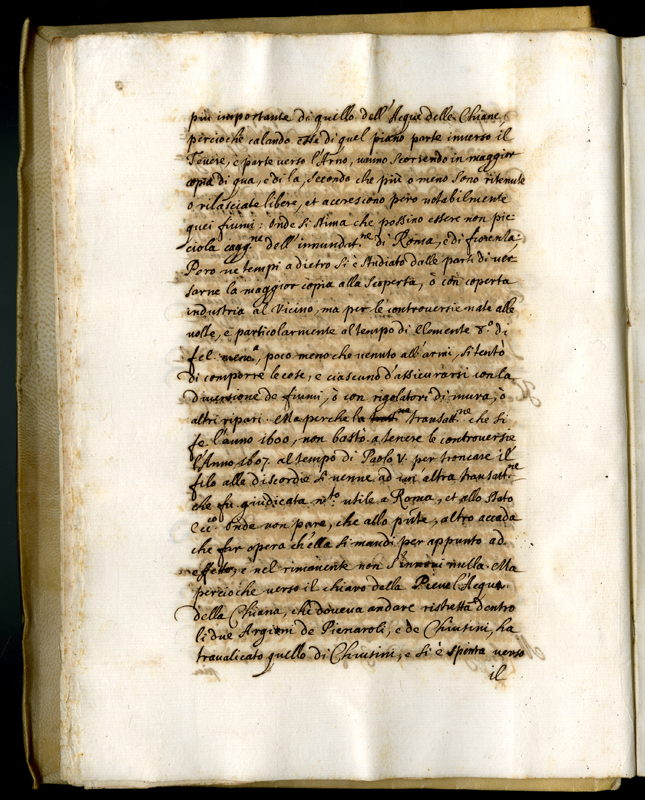 più importante di quello dell'Acque delle Chiane,
percioche calando esse di quel piano parte inverso il
Tevere, e parte verso l'Arno, vanno scorrendo in maggior
copia di qua, e di la, secondo che più o meno sono ritenute
o rilasciate libere, et accrescono però notabilmente
quei fiumi: onde si stima che possino essere non pic-
ciola cagg.ne dell'innundat.ne di Roma, e di fiorenza.
Pero ne tempi a dietro si è studiato dalle parti di ver-
sarne la maggior copia alla scoperta, ò con coperta
industria al Vicino, ma per le controversie nate alle
volte, e particolarmente al tempo di Clemente 8.o di
fel. mem.a, poco meno che venuto all'armi, si tentò
di comporre le cose, e ciascuno d'assicurarsi con la
diversione de fiumi, ò con rigolatori di mura, ò
altri ripari. Ma perche la transatt.ne che si
fe l'anno 1600, non bastò a tenere le controversie
l'Anno 1607. al tempo di Paolo V. per troncare il
filo alle discordie si venne ad un'altra transatt.ne
che fu giudicata m.to utile a Roma, et allo stato
Ecc.co Onde non pare, che allo pñte, altro accada
che far opera ch'ella si mandi per appunto ad
effetto, e nel rimanente non s'innovi nulla. Ma
percioche verso il chiaro della Pieve l'Acqua
della Chiana, che doveva andare ristretta dentro
li due Argini de Pienaroli, e de Chiusini, ha
travalicato quello di Chiusini, e si è spinta verso
il